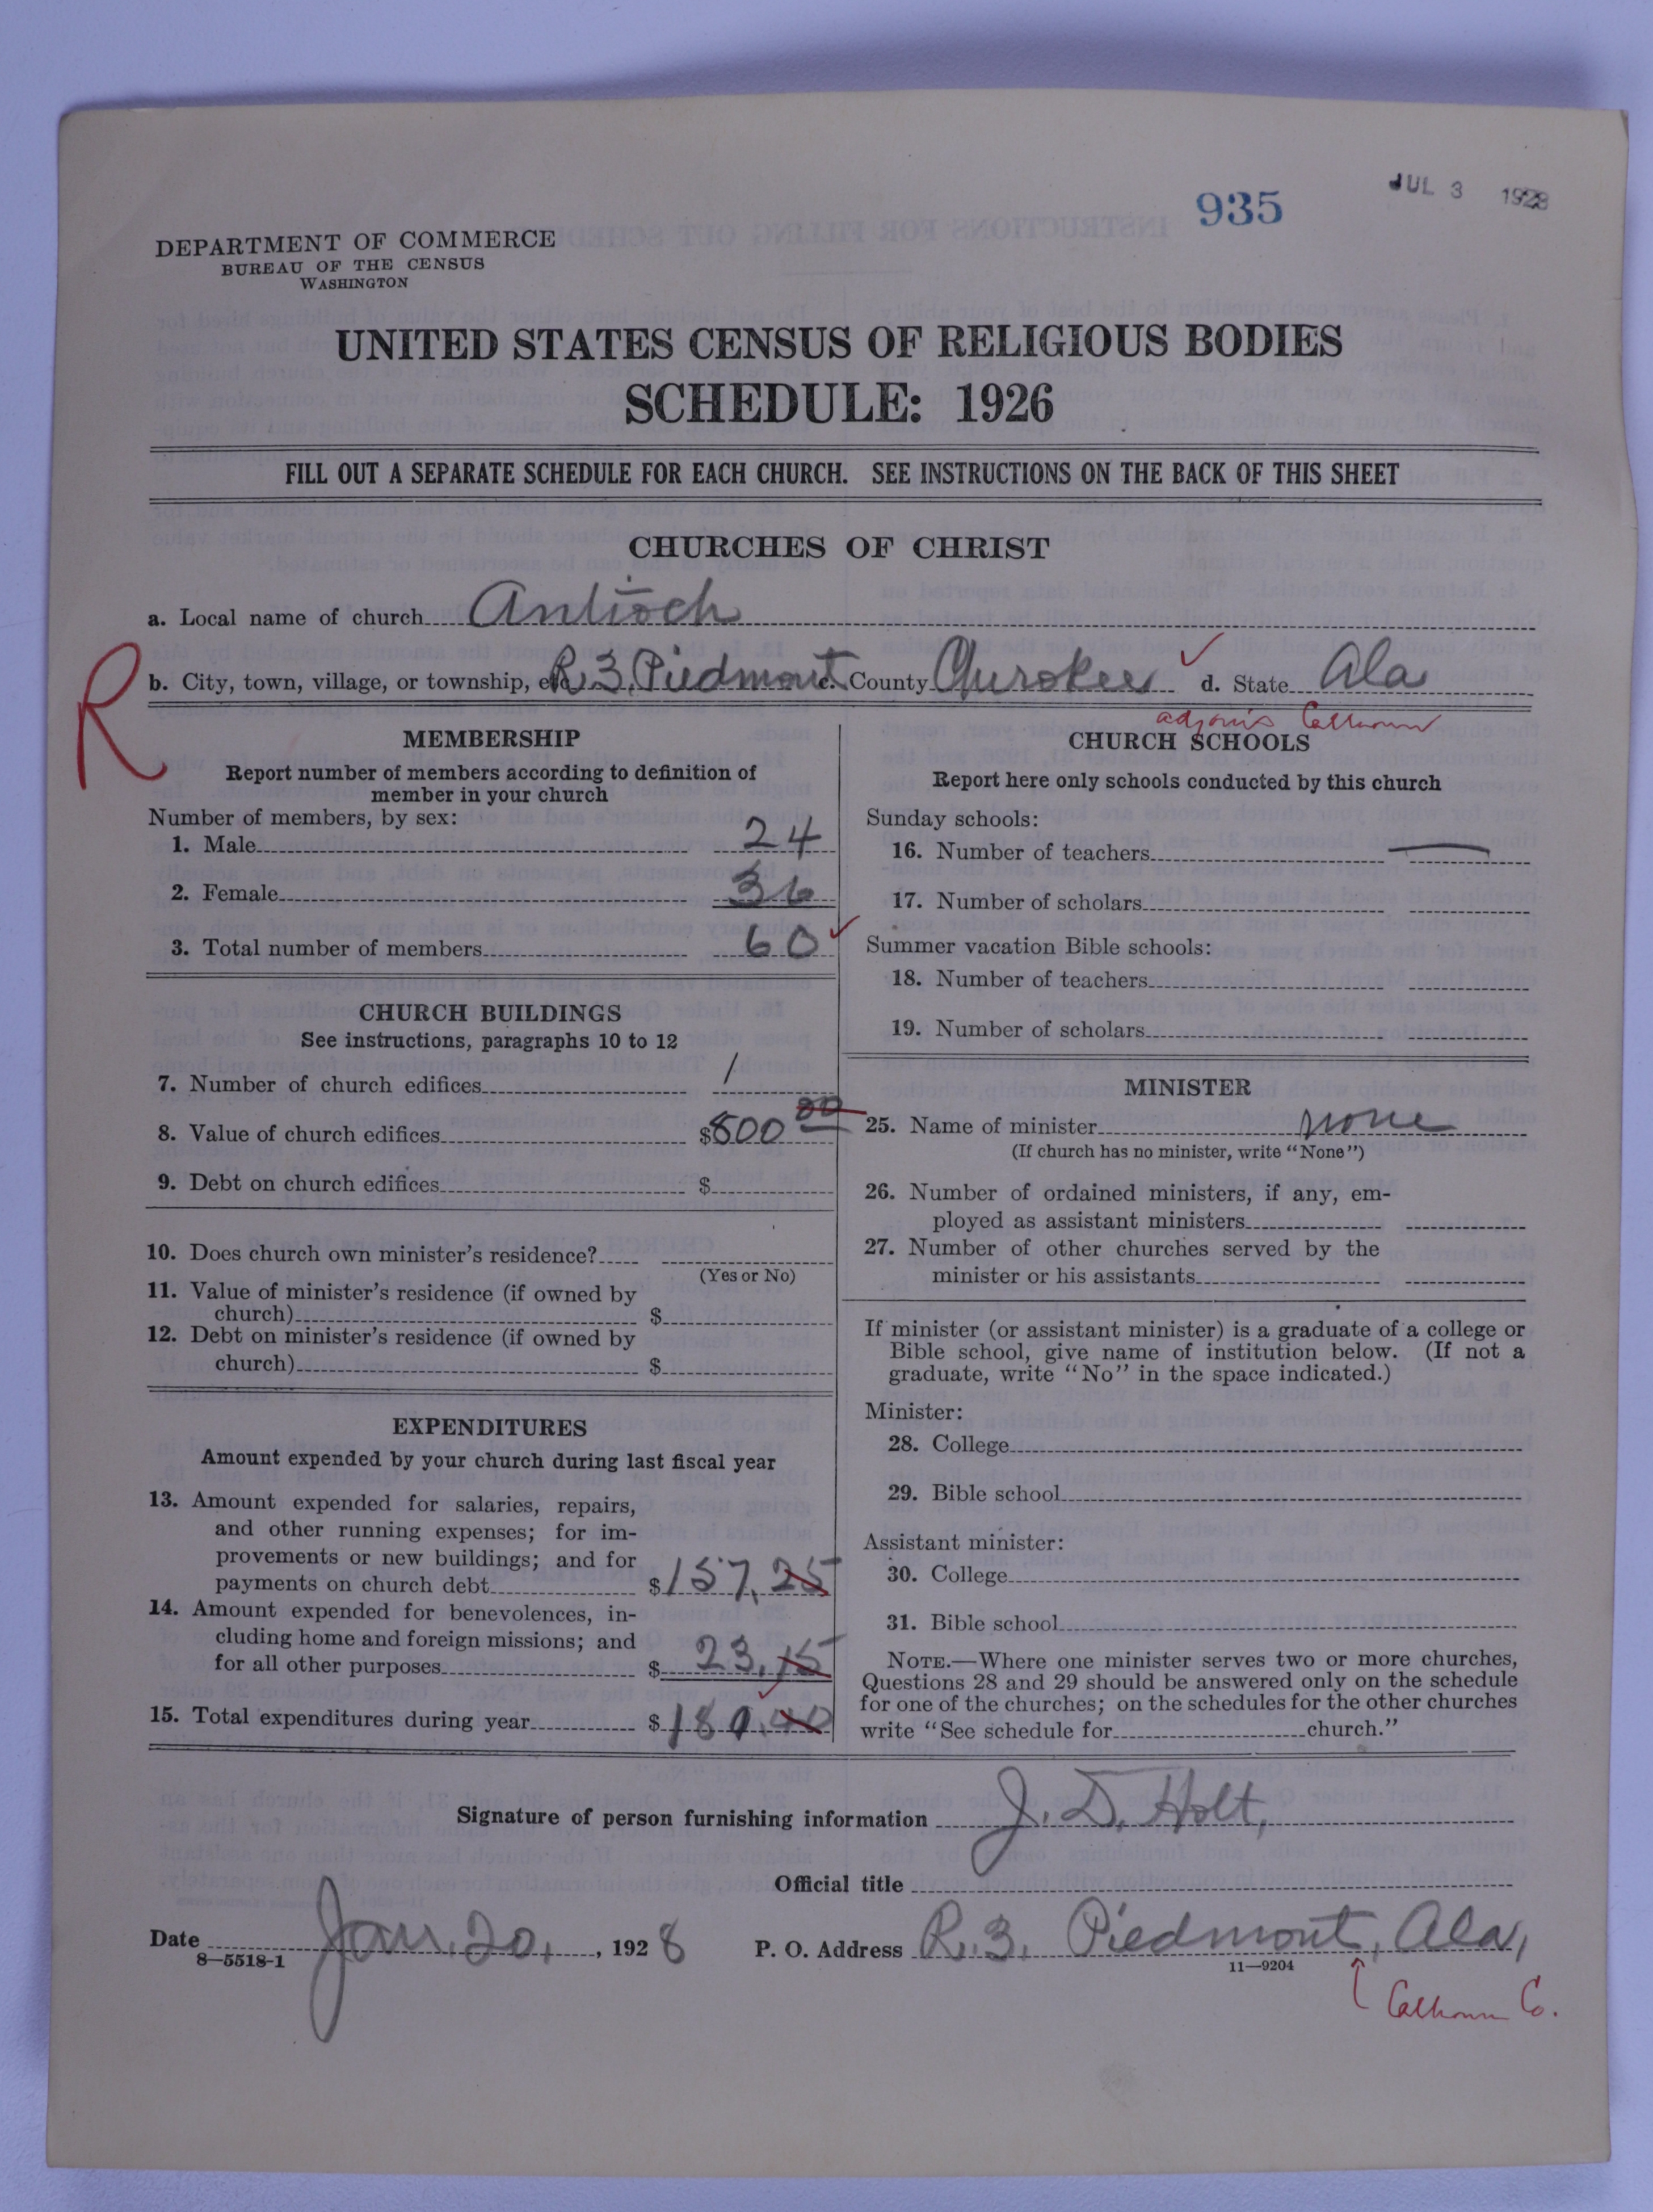 935
JUL 3 1928
DEPARTMENT OF COMMERCE
BUREAU OF THE CENSUS
WASHINGTON
UNITED STATES CENSUS OF RELIGIOUS BODIES
SCHEDULE: 1926
FILL OUT A SEPARATE SCHEDULE FOR EACH CHURCH. SEE INSTRUCTIONS ON THE BACK OF THIS SHEET
CHURCHES OF CHRIST
a. Local name of church Antioch
R
b. City, town, village, or township, etc. R 3, Piedmont c. County Cherokee d. State Ala
adjoins Calhoun
MEMBERSHIP
Report number of members according to definition of
member in your church
Number of members, by sex:
1. Male 24
2. Female 36
3. Total number of members 60
CHURCH BUILDINGS
See instructions, paragraphs 10 to 12
7. Number of church edifices 1
8. Value of church edifices $800 00
9. Debt on church edifices $
10. Does church own minister's residence?
(Yes or No)
11. Value of minister's residence (if owned by
church) $
12. Debt on minister's residence (if owned by
church) $
EXPENDITURES
Amount expended by your church during last fiscal year
13. Amount expended for salaries, repairs,
and other running expenses; for im-
provements or new buildings; and for
payments on church debt $157.25
14. Amount expended for benevolences, in-
cluding home and foreign missions; and
for all other purposes $23.15
15. Total expenditures during year $180.40
CHURCH SCHOOLS
Report here only schools conducted by this church
Sunday schools:
16. Number of teachers —
17. Number of scholars
Summer vacation Bible schools:
18. Number of teachers
19. Number of scholars
MINISTER
25. Name of minister none
(If church has no minister, write "None")
26. Number of ordained ministers, if any, em-
ployed as assistant ministers
27. Number of other churches served by the
minister or his assistants
If minister (or assistant minister) is a graduate of a college or
Bible school, give name of institution below. (If not a
graduate, write "No" in the space indicated.)
Minister:
28. College
29. Bible school
Assistant minister:
30. College
31. Bible school
NOTE.—Where one minister serves two or more churches,
Questions 28 and 29 should be answered only on the schedule
for one of the churches; on the schedules for the other churches
write "See schedule for church."
Signature of person furnishing information J. D. Holt,
Official title
Date Jan. 20, , 1928 P. O. Address R. 3. Piedmont, Ala,
8—5518-1 11—9204
Calhoun Co.